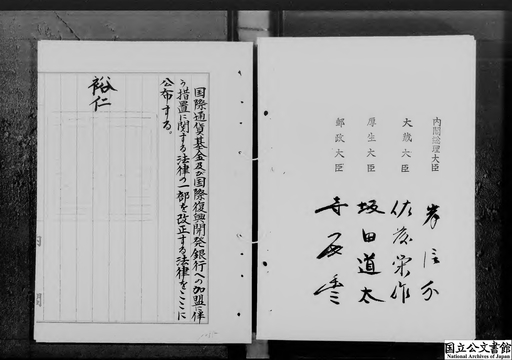 国際通貨基金及び国際復興開発銀行への加盟に伴
う措置に関する法律の一部を改正する法律をここに
公布する。
裕仁
内閣総理大臣 岸信介
大蔵大臣 佐藤栄作
厚生大臣 坂田道太
郵政大臣 寺尾豊
国立公文書館
National Archives of Japan